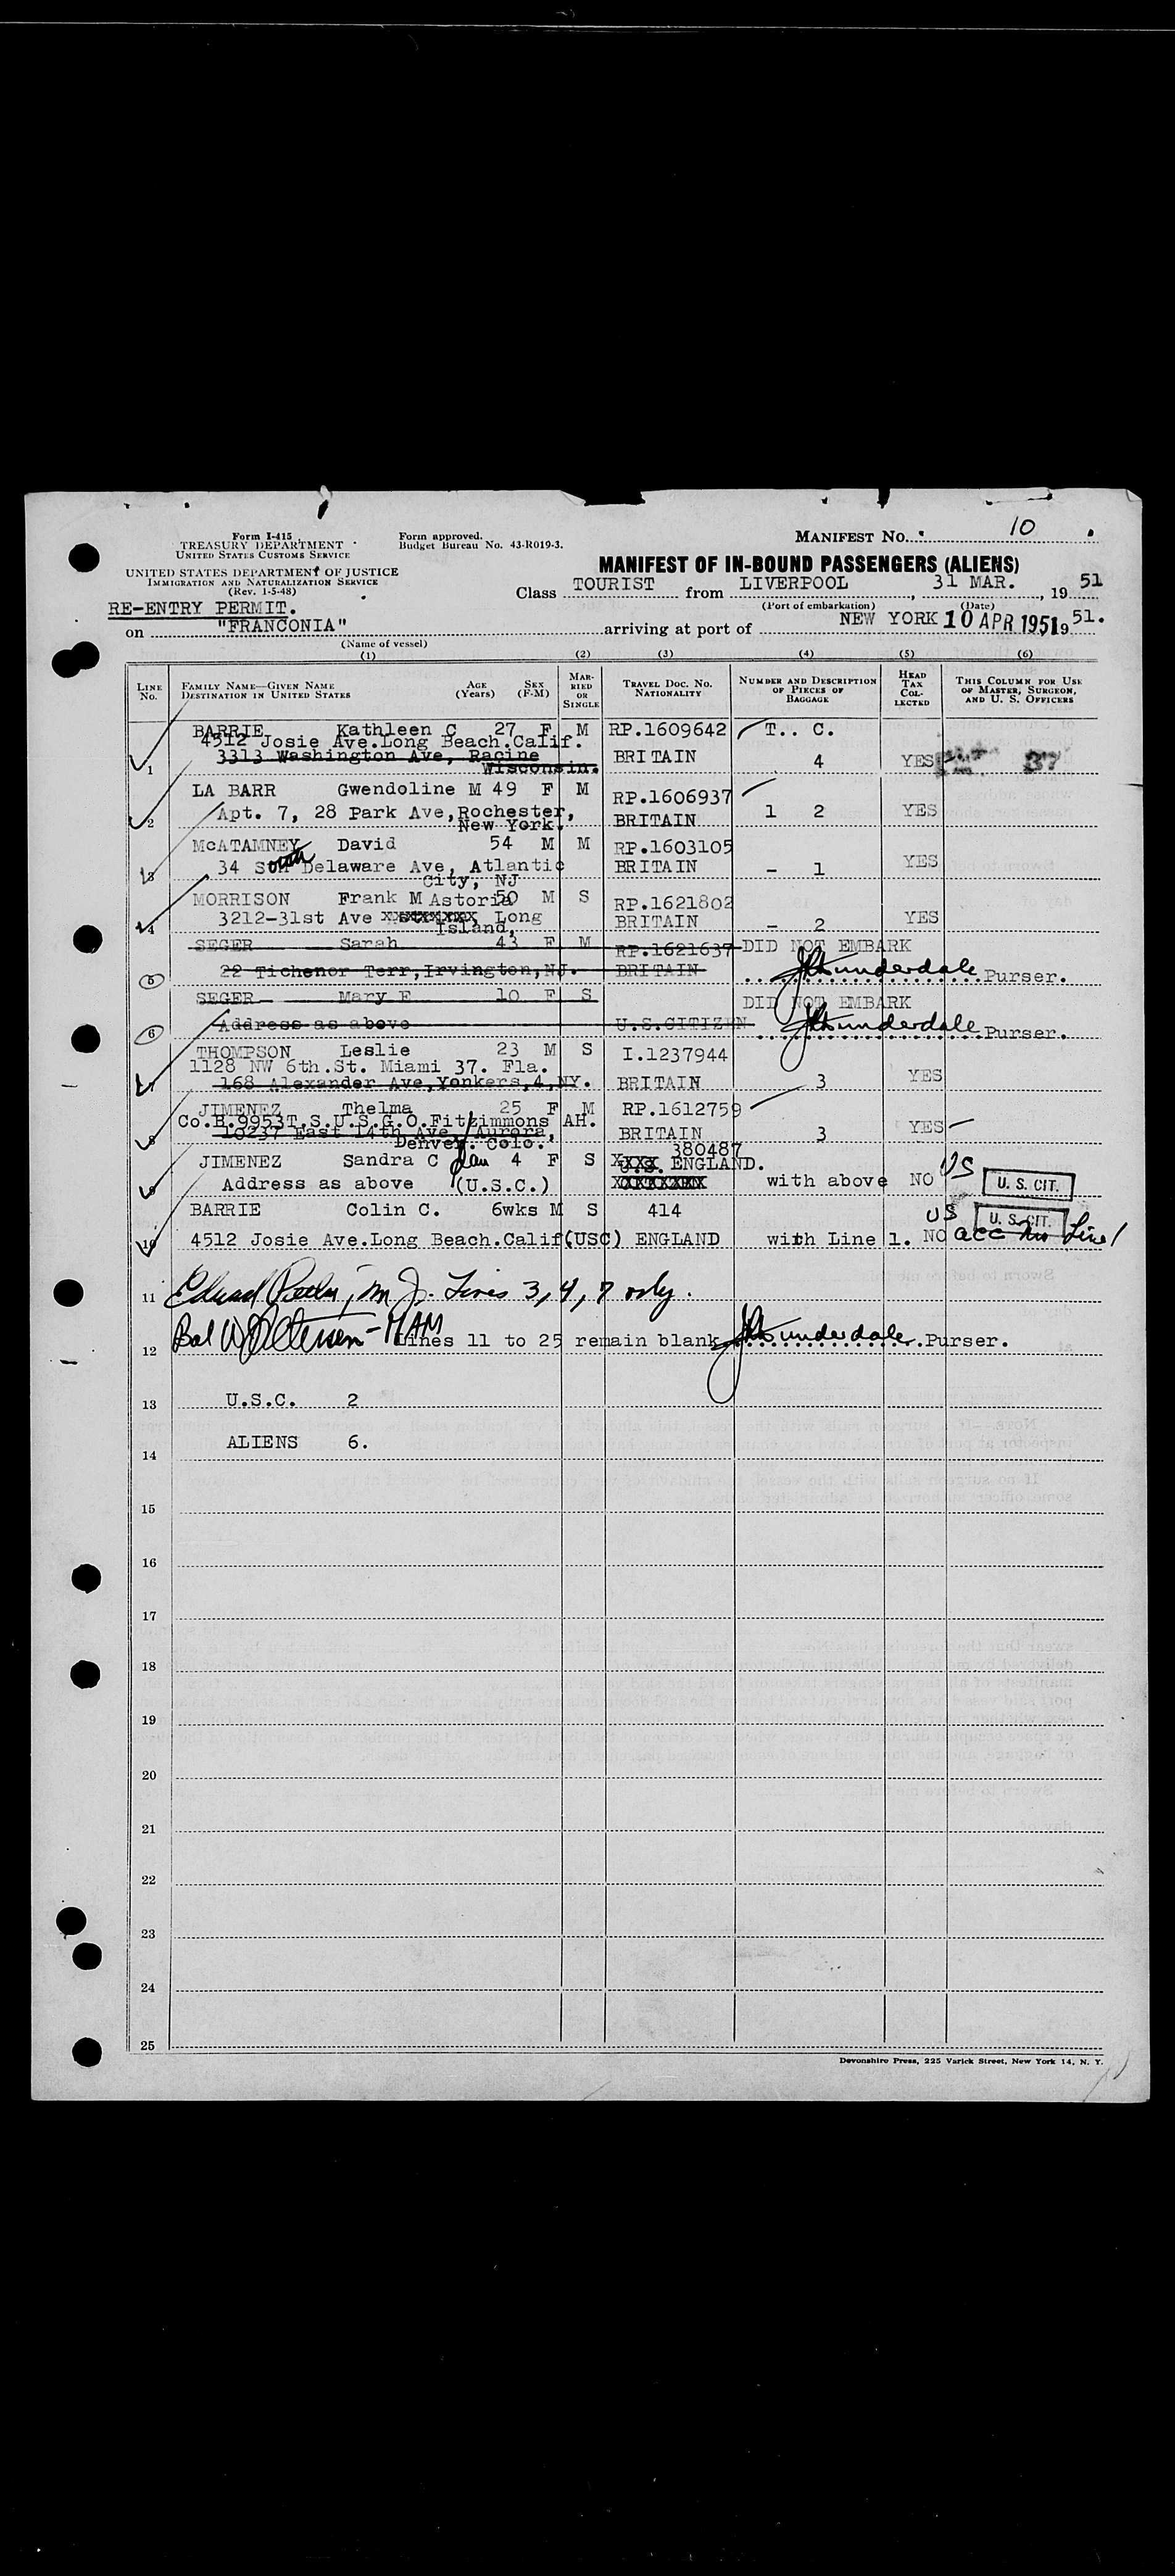 Form I-415
TREASURY DEPARTMENT
UNITED STATES CUSTOMS SERVICE
Form approved.
Budget Bureau No. 43-R019-3.
MANIFEST NO. 10
UNITED STATES DEPARTMENT OF JUSTICE
IMMIGRATION AND NATURALIZATION SERVICE
(Rev. 1-5-48)
MANIFEST OF IN-BOUND PASSENGERS (ALIENS)
Class TOURIST from LIVERPOOL, 31 MAR., 1951
(Port of embarkation) (Date)
RE-ENTRY PERMIT.
on "FRANCONIA" arriving at port of NEW YORK 10 APR 1951 1951.
(Name of vessel)
(1) (2) (3) (4) (5) (6)
LINE NO. FAMILY NAME—GIVEN NAME DESTINATION IN UNITED STATES AGE (Years) SEX (F-M) MARRIED OR SINGLE TRAVEL DOC. NO. NATIONALITY NUMBER AND DESCRIPTION OF PIECES OF BAGGAGE HEAD TAX COLLECTED THIS COLUMN FOR USE OF MASTER, SURGEON, AND U. S. OFFICERS
BARRIE Kathleen C 27 F M RP.1609642 T.. C.
4512 Josie Ave.Long Beach.Calif.
1 3313 Washington Ave, Racine BRITAIN 4 YES 37
Wisconsin.
LA BARR Gwendoline M 49 F M RP.1606937
2 Apt. 7, 28 Park Ave,Rochester, BRITAIN 1 2 YES
New York.
McATAMNEY David 54 M M RP.1603105
3 34 South Delaware Ave, Atlantic BRITAIN - 1 YES
City, NJ
MORRISON Frank M 50 M S RP.1621802
Astoria
4 3212-31st Ave Long BRITAIN - 2 YES
Island,
SEGER Sarah 43 F M RP.1621637 DID NOT EMBARK
5 22 Tichenor Terr,Irvington,NJ. BRITAIN Purser.
SEGER Mary E 10 F S DID NOT EMBARK
6 Address as above U.S.CITIZEN Purser.
THOMPSON Leslie 23 M S I.1237944
1128 NW 6th.St. Miami 37. Fla.
7 168 Alexander Ave,Yonkers,4,NY. BRITAIN 3 YES
JIMENEZ Thelma 25 F M RP.1612759
Co.B.9953T.S.U.S.G.O.Fitzimmons AH.
8 10237 East 14th Ave, Aurora, BRITAIN 3 YES
Denver. Colo.
380487
JIMENEZ Sandra C 4 F S ENGLAND. US
9 Address as above (U.S.C.) with above NO U. S. CIT.
BARRIE Colin C. 6wks M S 414 US U. S. CIT.
10 4512 Josie Ave.Long Beach.Calif(USC) ENGLAND with Line 1. NO acc Line 1
11 Lines 3, 4, 7 only.
12 Lines 11 to 25 remain blank Purser.
13 U.S.C. 2
14 ALIENS 6.
15
16
17
18
19
20
21
22
23
24
25
Devonshire Press, 225 Varick Street, New York 14, N. Y.